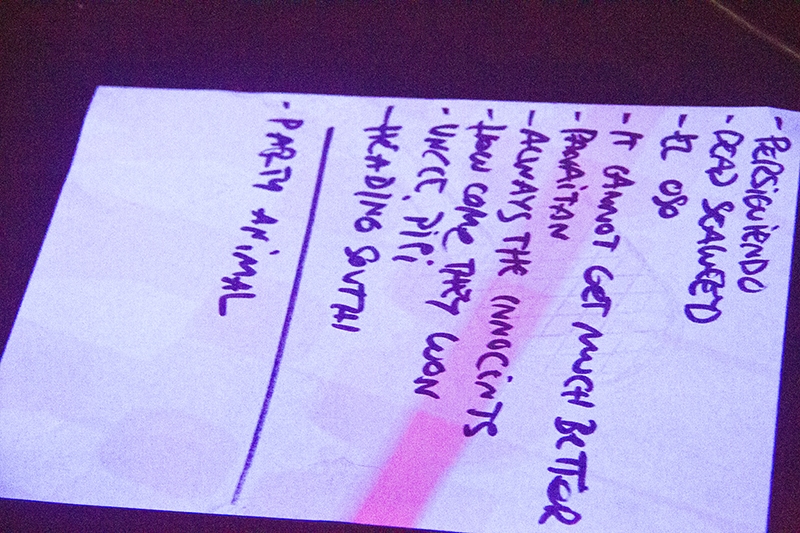 - PERSIGUIENDO
- DEAD SEAWEED
- EL OSO
- IT CANNOT GET MUCH BETTER
- PANAITAN
- ALWAYS THE INNOCINTS
- HOW COME THEY WON
- UNCLE PIPI
- HEADING SOUTH
- PARTY ANIMAL